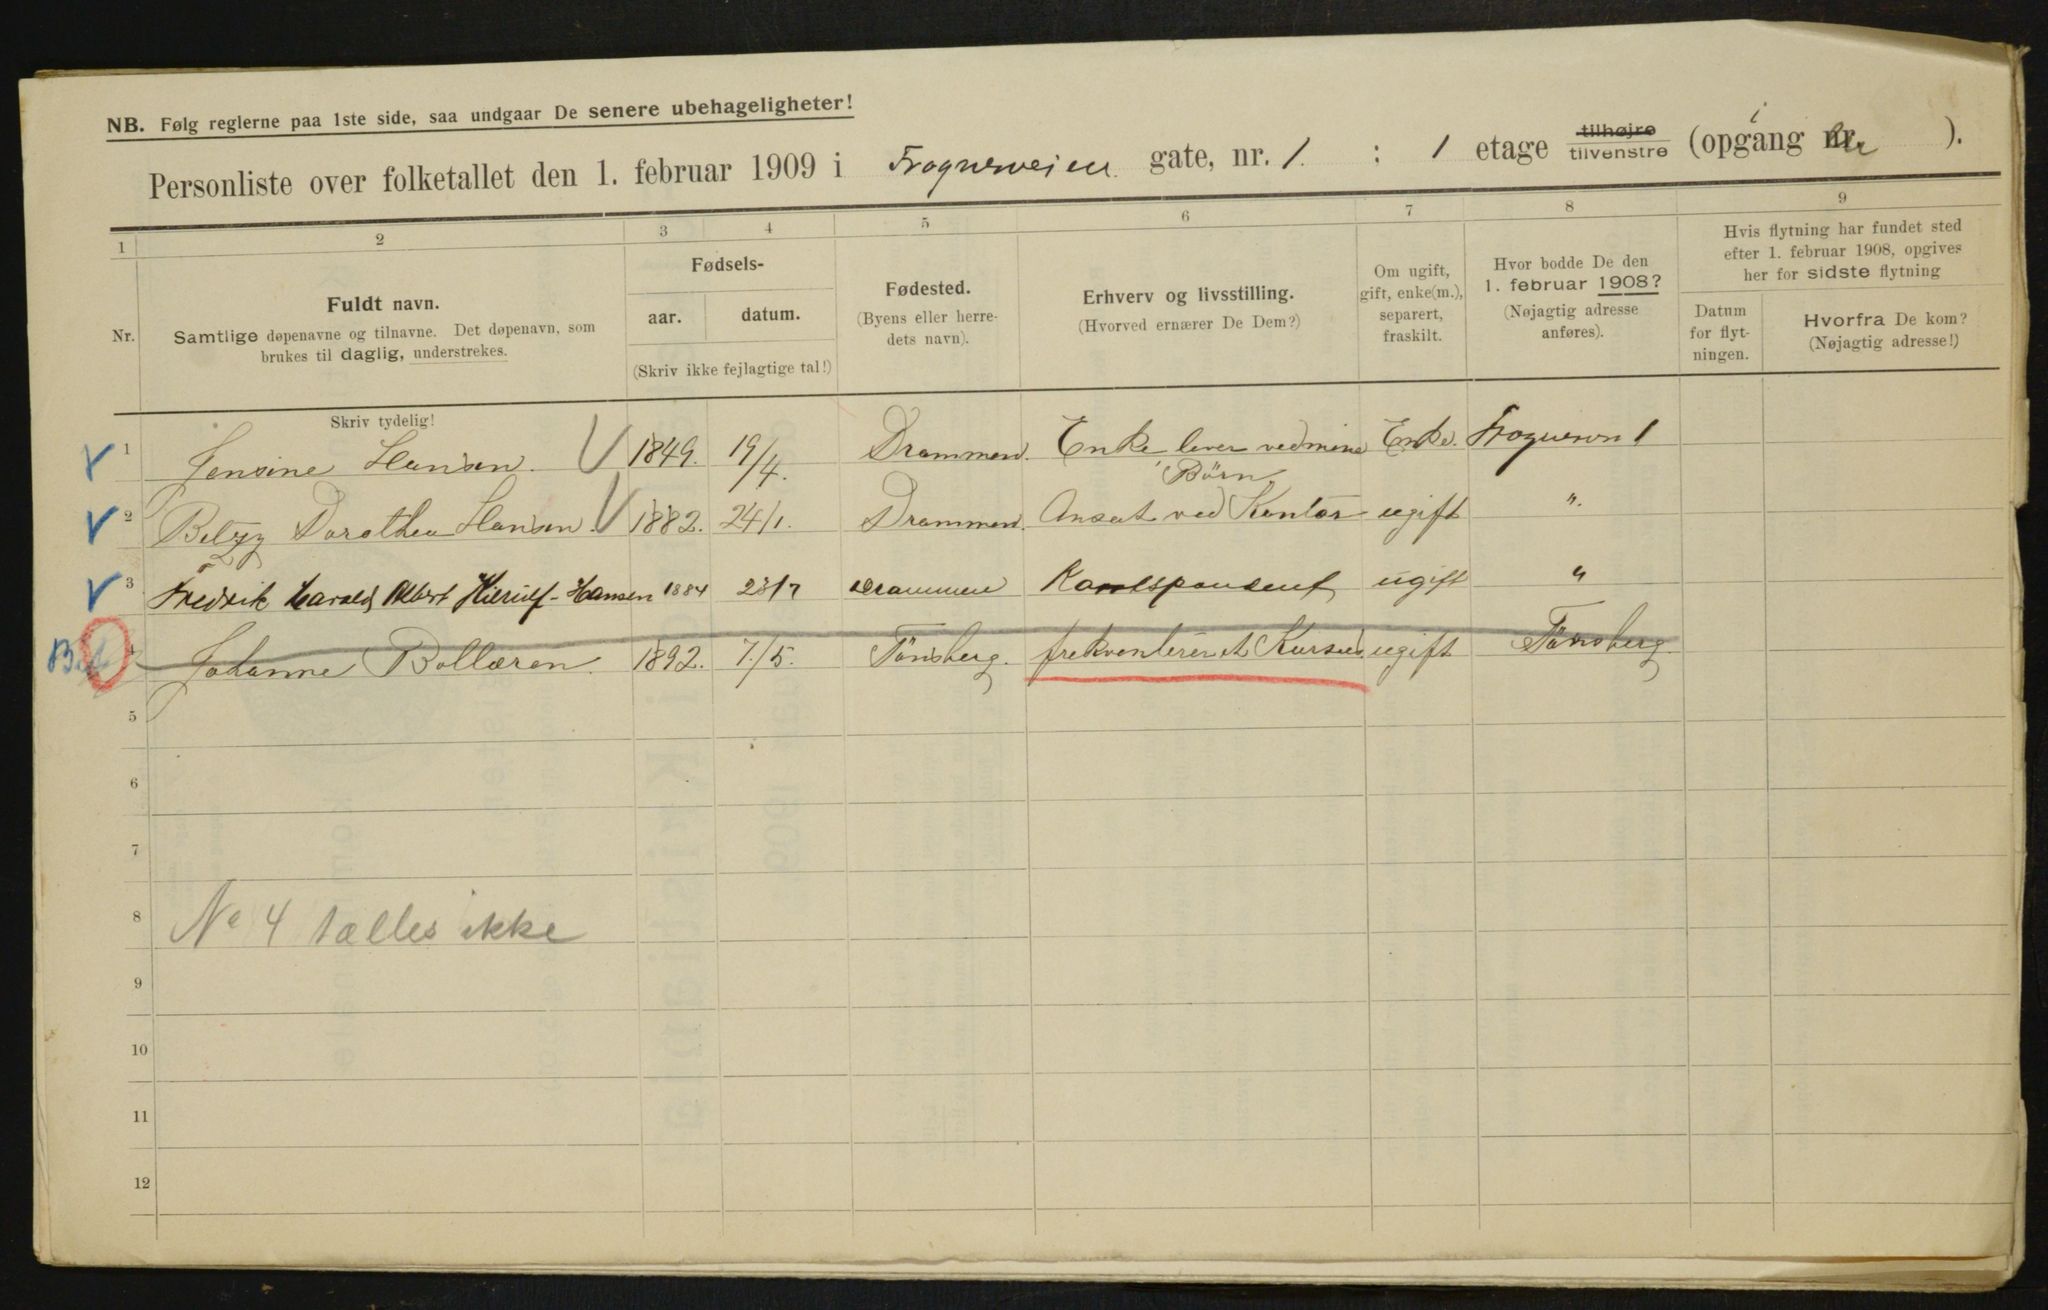 NB. Følg reglerne paa 1ste side, saa undgaar De senere ubehageligheter!
Personliste over folketallet den 1. februar 1909 i Frognerveien gate, nr. 1. : 1 etage tilhøjre tilvenstre (opgang i nr. ).
1 2 3 4 5 6 7 8 9
Nr.
Fuldt navn.
Samtlige døpenavne og tilnavne. Det døpenavn, som
brukes til daglig, understrekes.
Fødsels-
aar. datum.
(Skriv ikke fejlagtige tal!)
Fødested.
(Byens eller herre-
dets navn).
Erhverv og livsstilling.
(Hvorved ernærer De Dem?)
Om ugift,
gift, enke(m.),
separert,
fraskilt.
Hvor bodde De den
1. februar 1908?
(Nøjagtig adresse
anføres).
Hvis flytning har fundet sted
efter 1. februar 1908, opgives
her for sidste flytning
Datum
for flyt-
ningen.
Hvorfra De kom?
(Nøjagtig adresse!)
Skriv tydelig!
1 Jensine Hansen. 1849. 19/4. Drammen. Enke lever ved mine Børn Enke. Frognervn 1
2 Betzy Dorothea Hansen. 1882. 24/1. Drammen. Ansat ved Kontor ugift ".
3 Fredrik Harald Albert Hierulf-Hansen 1884 23/7 Drammen Korrespondent ugift "
4 Johanne Bollæren. 1892. 7./5. Tönsberg. frekventerer et Kursus ugift Tönsberg.
5
6
7
8 No 4 tælles ikke
9
10
11
12